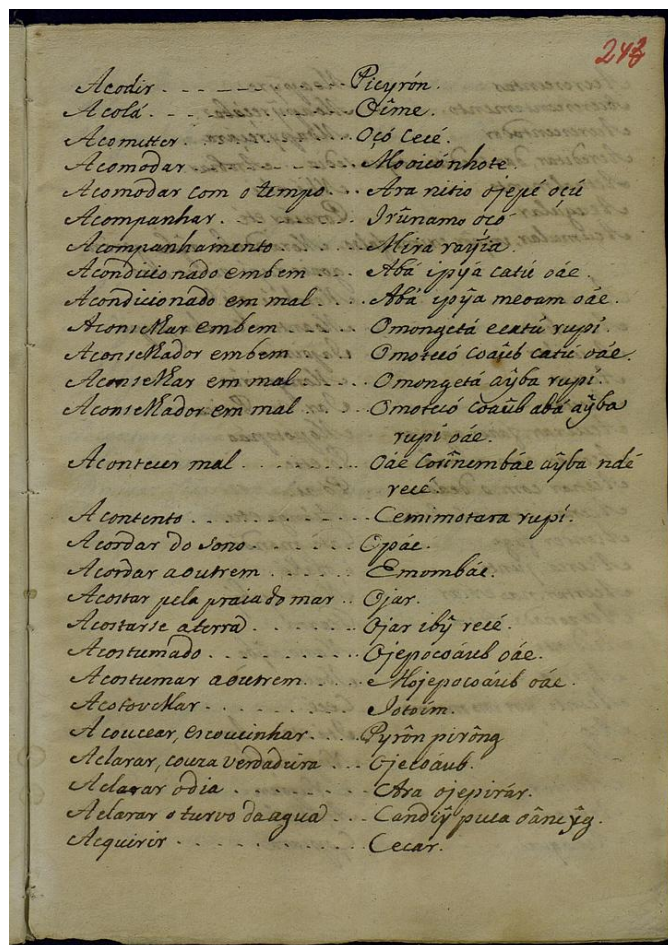 243
Acodir - - - - - - - - Picyrón.
Acolá - - - - - - - - Oîme.
Acometter - - - - - - Oçó Cecé.
Acomodar - - - - - - Mooicónhote.
Acomodar com o tempo - - - Ara nitio ojepé oçú
Acompanhar - - - - - - Irûnamo oçó
Acompanhamento - - - Mira raŷia.
Acondicionado embem - - - Abá ipŷa catú oáe.
Acondicionado em mal - - - Abá ipŷa meoam oáe.
Aconselhar embem - - - - Omongetá ecatú rupí.
Aconselhador embem - - - Omoteió coaûb catú oáe.
Aconselhar em mal - - - - Omongetá aŷba rupí.
Aconselhador em mal - - - Omoteió coaûb abá aŷba
rupí oáe.
Acontecer mal - - - - - - - - Oáe aŷba ndé
recé.
Acontento - - - - - - - - - - Cemimotara rupí.
Acordar do sono - - - - - - Opáe.
Acordar aoutrem - - - - - Emombáe.
Acostar pela praia do mar - - Ojar.
Acostarse aterra - - - - - - Ojar ibŷ recé.
Acostumado - - - - - - - - - Ojepocoáub oáe.
Acostumar aoutrem - - - - Mojepocoáub oáe.
Acotovelhar - - - - - - - - Jotoím.
Acoucear, escoucinhar - - - - Pyrôn pirông
Aclarar, couza verdadeira - - - Ojecoáub.
Aclarar odia - - - - - - - Ara ojepirár.
Aclarar o turvo daagua - - -
Acquirir - - - - - - - - - - Cecar.